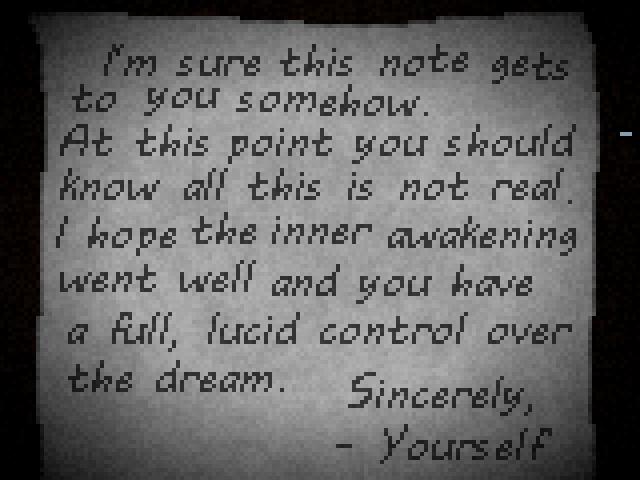 I'm sure this note gets
to you somehow.
At this point you should
know all this is not real.
I hope the inner awakening
went well and you have
a full, lucid control over
the dream.
Sincerely,
- Yourself